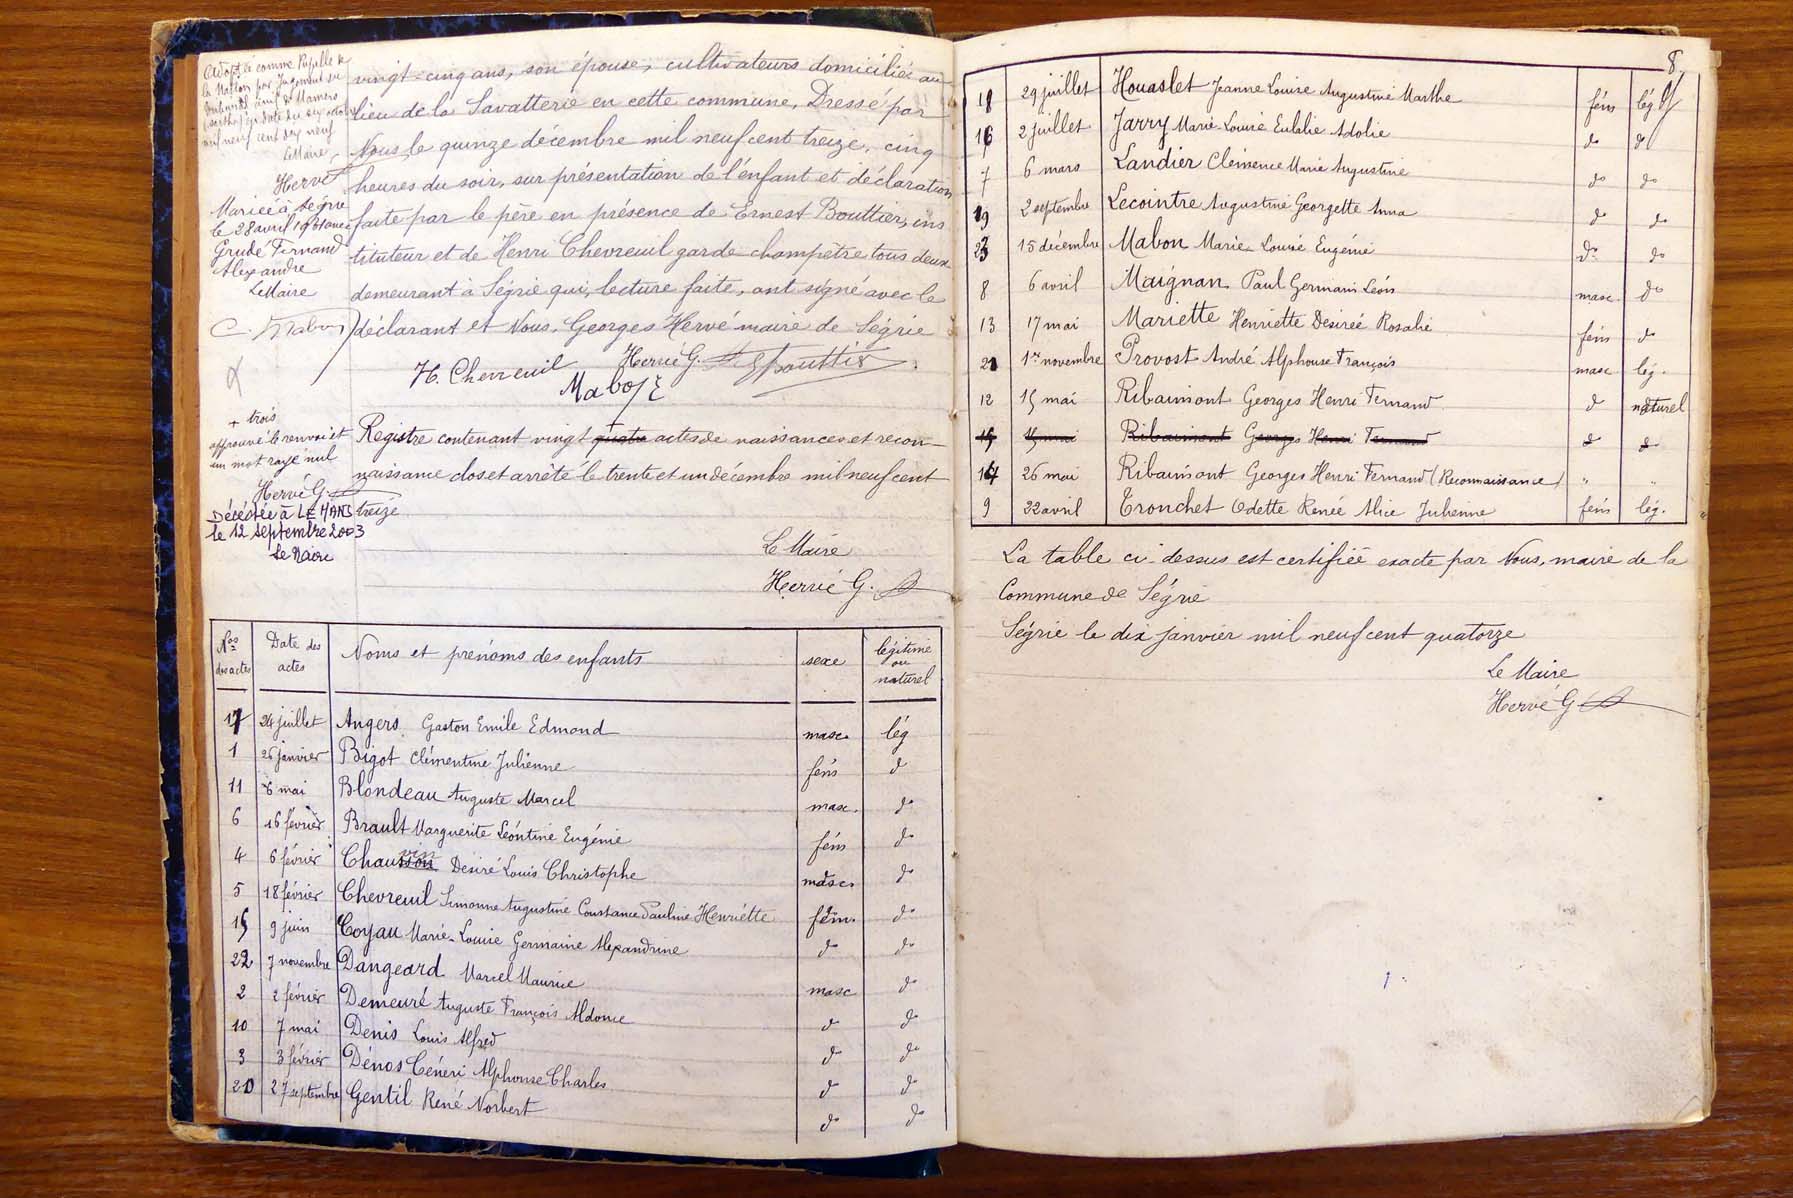 Adoptée comme Pupille de
la Nation par Jugement du
tribunal civil de Mamers
(Sarthe) en date du six octobre
mil neuf cent dix neuf
Le Maire
Hervé
Mariée à Ségrie
le 28 avril 1931 avec
Grudé Fernand
Alexandre
Le Maire
C. Mabon
vingt-cinq ans, son épouse, cultivateurs domiciliés au
lieu de la Savatterie en cette commune, Dressé par
Nous, le quinze décembre mil neuf cent treize, cinq
heures du soir, sur présentation de l'enfant et déclaration
faite par le père en présence de Ernest Bouttier, ins
tituteur et de Henri Chevreuil garde-champêtre tous deux
demeurant à Ségrie qui, lecture faite, ont signé avec le
déclarant et Nous, Georges Hervé maire de Ségrie
H. Chevreuil Hervé G. EBouttier
Mabon E
+ trois
approuvé le renvoi et
un mot rayé nul
Hervé G
Décédée à LE MANS
le 12 septembre 2003
Le Maire
Registre contenant vingt + quatre actes de naissances et recon-
naissance clos et arrêté le trente et un décembre mil neuf cent
treize
Le Maire
Hervé G.
Nos des actes Date des actes Noms et prénoms des enfants sexe légitime ou naturel
17 24 juillet Angers Gaston Emile Edmond masc. lég
1 26 janvier Bigot Clémentine Julienne fém do
11 8 mai Blondeau Auguste Marcel masc. do
6 16 février Brault Marguerite Léontine Eugénie fém do
4 6 février Chausson vin Desiré Louis Christophe masc. do
5 18 février Chevreuil Simonne Augustine Constance Pauline Henriette fém. do
15 9 juin Coyau Marie-Louise Germaine Alexandrine do do
22 7 novembre Dangeard Marcel Maurice masc do
2 2 février Demeuré Auguste François Aldonce do do
10 7 mai Denis Louis Alfred do do
3 3 février Dénos Céneri Alphonse Charles do do
20 27 septembre Gentil René Norbert do do
8
18 29 juillet Houaslet Jeanne Louise Augustine Marthe fém lég
16 2 juillet Jarry Marie Louise Eulalie Adolie do do
7 6 mars Landier Clémence Marie Augustine do do
19 2 septembre Lecointre Augustine Georgette Anna do do
23 15 décembre Mabon Marie Louise Eugénie do do
8 6 avril Maignan Paul Germain Léon masc do
13 17 mai Mariette Henriette Desireé Rosalie fém do
21 1er novembre Provost André Alphonse François masc lég.
12 15 mai Ribaimont Georges Henri Fernand do naturel
15 15 mai Ribaimont Georges Henri Fernand do do
14 26 mai Ribaimont Georges Henri Fernand (Reconnaissance) " "
9 22 avril Tronchet Odette Renée Alice Julienne fém lég.
La table ci-dessus est certifiée exacte par Nous, maire de la
Commune de Ségrie
Ségrie le dix janvier mil neuf cent quatorze
Le Maire
Hervé G